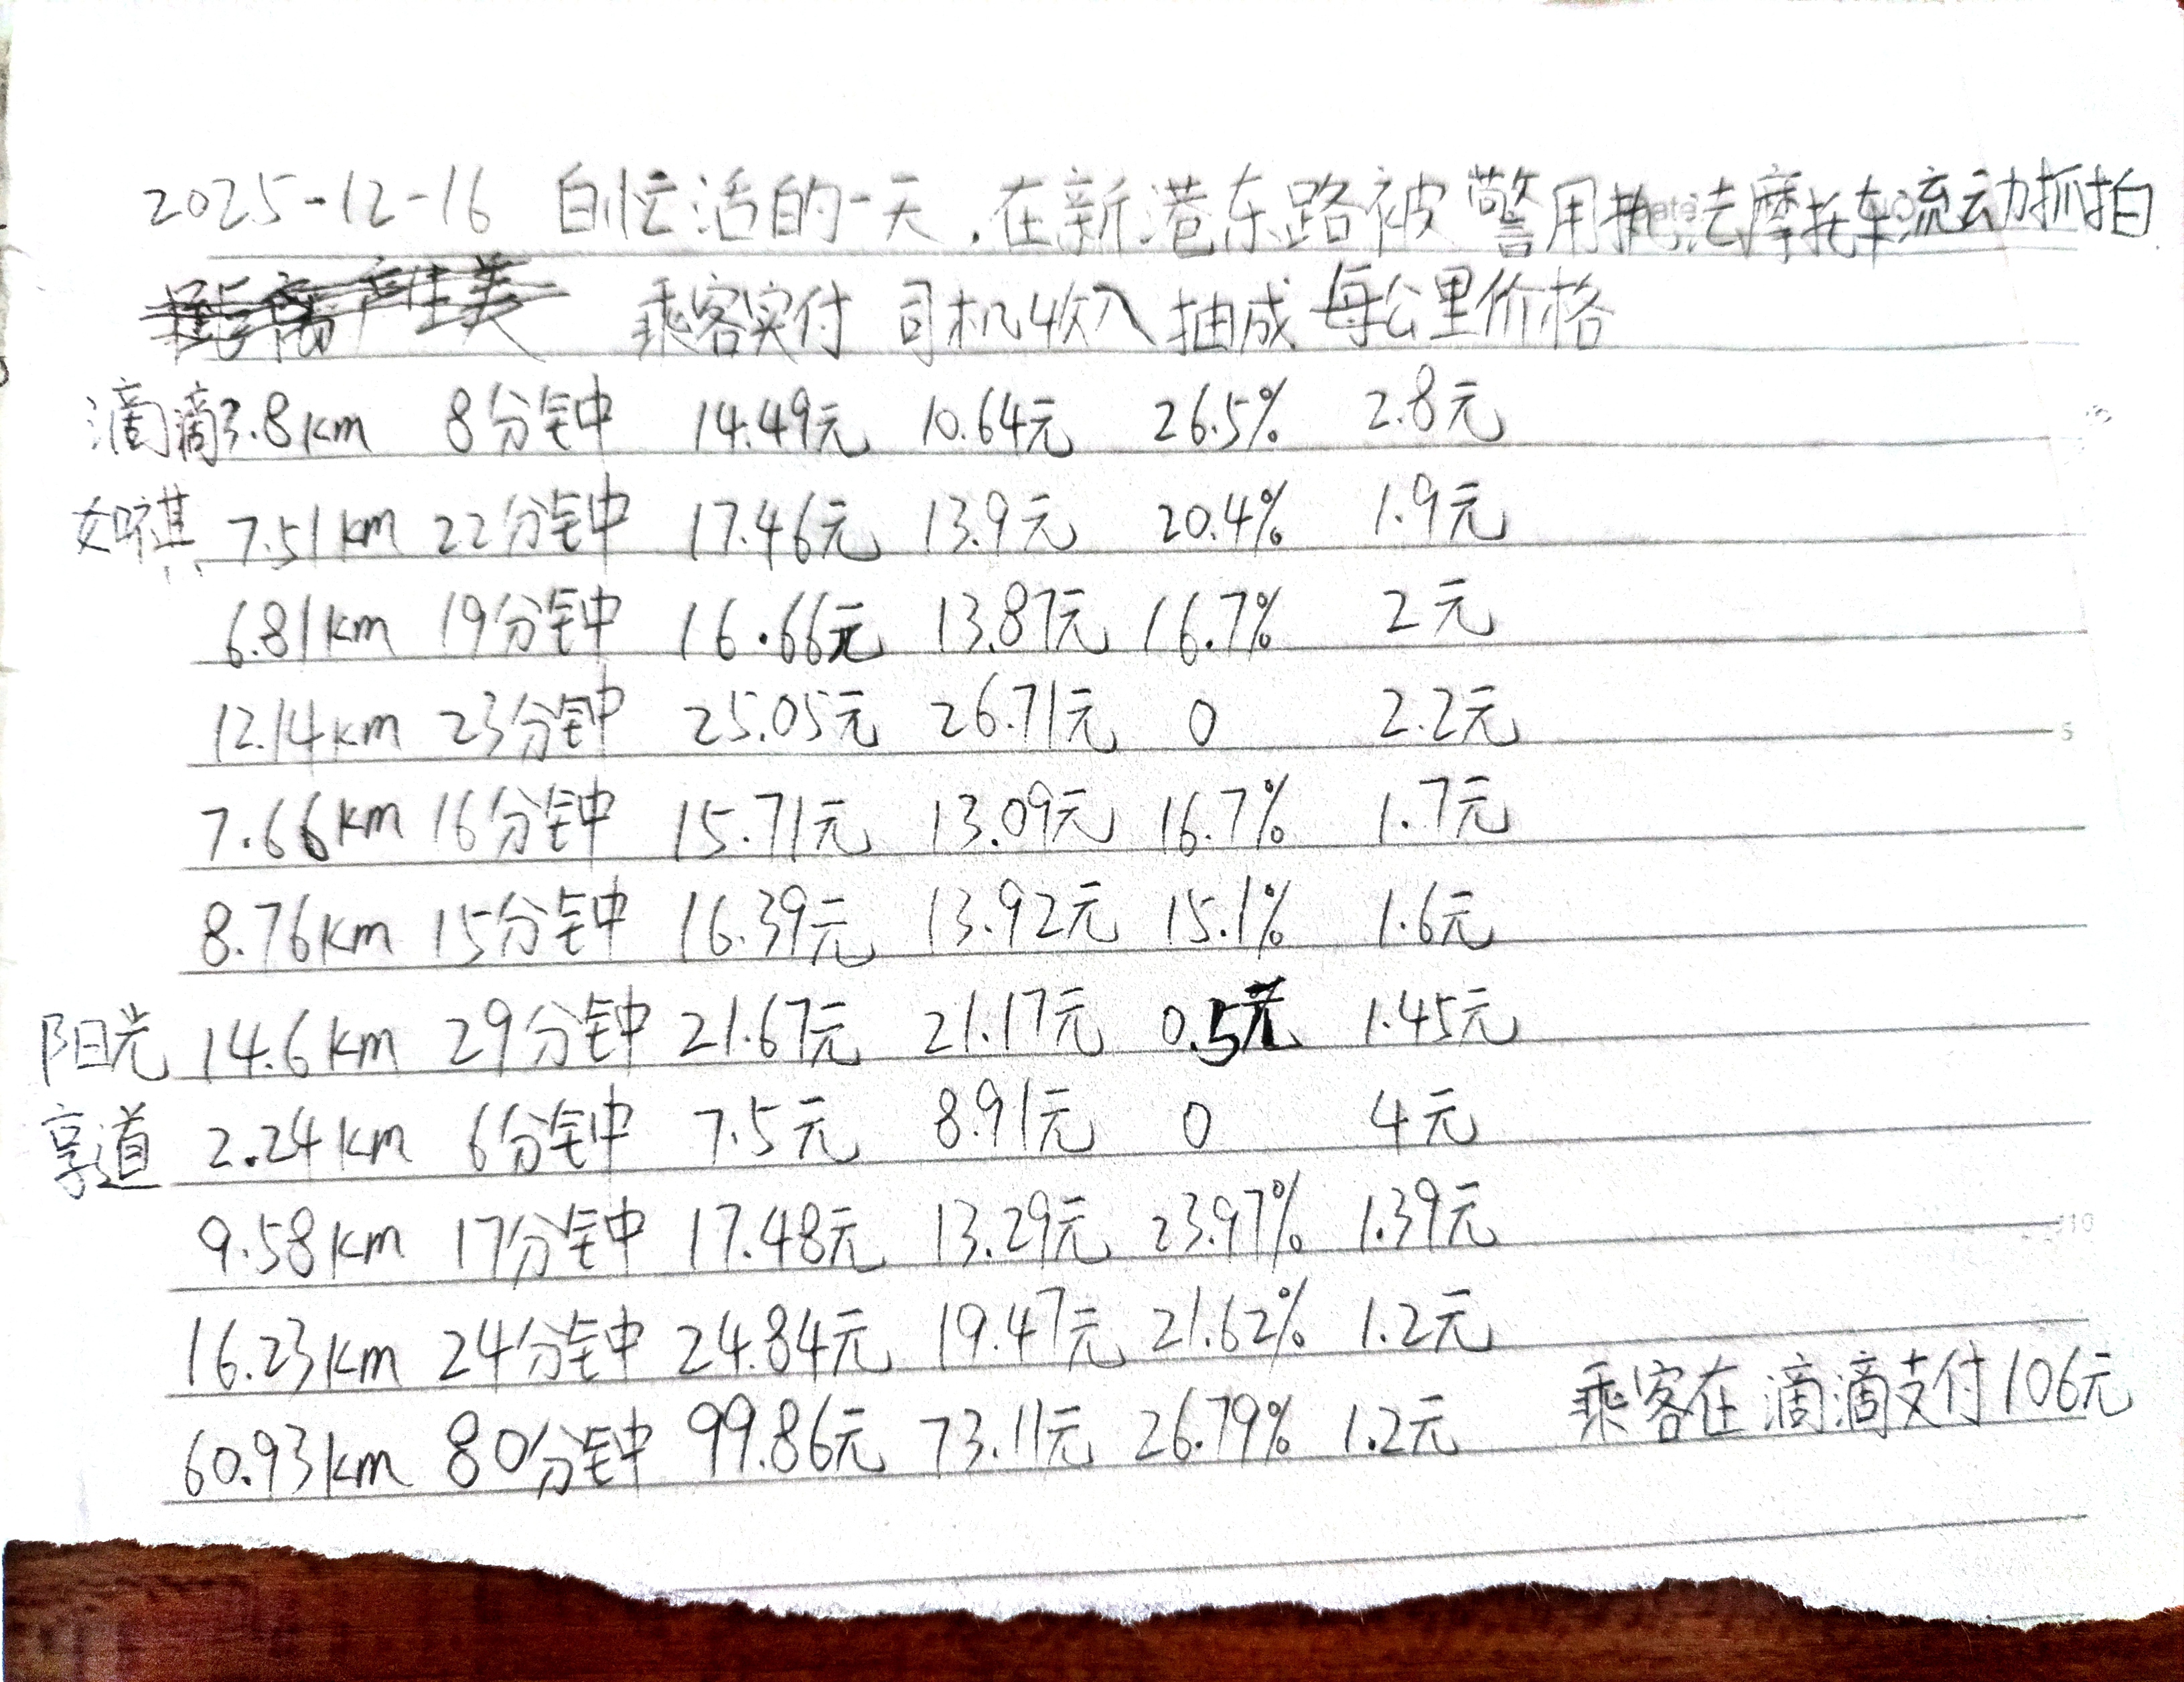 2025-12-16 白忙活的一天,在新港东路被警用执法摩托车流动抓拍
乘客实付 司机收入 抽成 每公里价格
滴滴 3.8km 8分钟 14.49元 10.64元 26.5% 2.8元
如祺 7.51km 22分钟 17.46元 13.9元 20.4% 1.9元
6.81km 19分钟 16.66元 13.87元 16.7% 2元
12.14km 23分钟 25.05元 26.71元 0 2.2元
5
7.66km 16分钟 15.71元 13.09元 16.7% 1.7元
8.76km 15分钟 16.39元 13.92元 15.1% 1.6元
阳光 14.6km 29分钟 21.67元 21.17元 0.5元 1.45元
享道 2.24km 6分钟 7.5元 8.91元 0 4元
9.58km 17分钟 17.48元 13.29元 23.97% 1.39元
10
16.23km 24分钟 24.84元 19.47元 21.62% 1.2元
60.93km 80分钟 99.86元 73.11元 26.79% 1.2元 乘客在滴滴支付106元